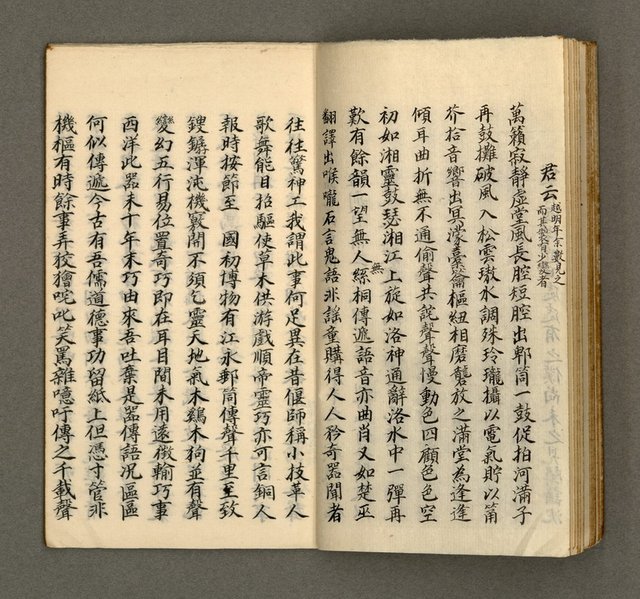 君云 越明年余數見之而其製有少變者
萬籟寂靜虛堂風長腔短腔出郫筒一鼓促拍河滿子
再鼓攤破風入松雲璈水調殊玲瓏攝以電氣貯以筩
芥拾音響出冥濛橐籥樞紐相磨礲放之滿堂為逢逢
傾耳曲折無不通偷聲共說聲聲慢動色四顧色色空
初如湘靈鼓瑟湘江上旋如洛神通辭洛水中一彈再
歎有餘韻一望無人絲桐傳遞語音亦曲肖又如楚巫
無
翻譯出喉嚨石言鬼語非謠童購得人人矜奇器聞者
往往驚神工我謂此事何足異在昔偃師稱小技革人
歌舞能目招驅使草木供游戲順帝靈巧亦可言銅人
報時按節至 國初博物有江永郵筒傳聲千里至致
鎪鑼渾沌機竅開不須乞靈天地氣木鷄木狗並有聲
變幻五行易位置奇巧即在耳目間未用遠徵輸巧事
西洋此器未十年未巧由來吾吐棄是器傳語况區區
何似傳遞今古有吾儒道德事功留紙上但憑寸管非
機樞有時餘事弄狡獪咤此笑罵雜噫吁傳之千載聲